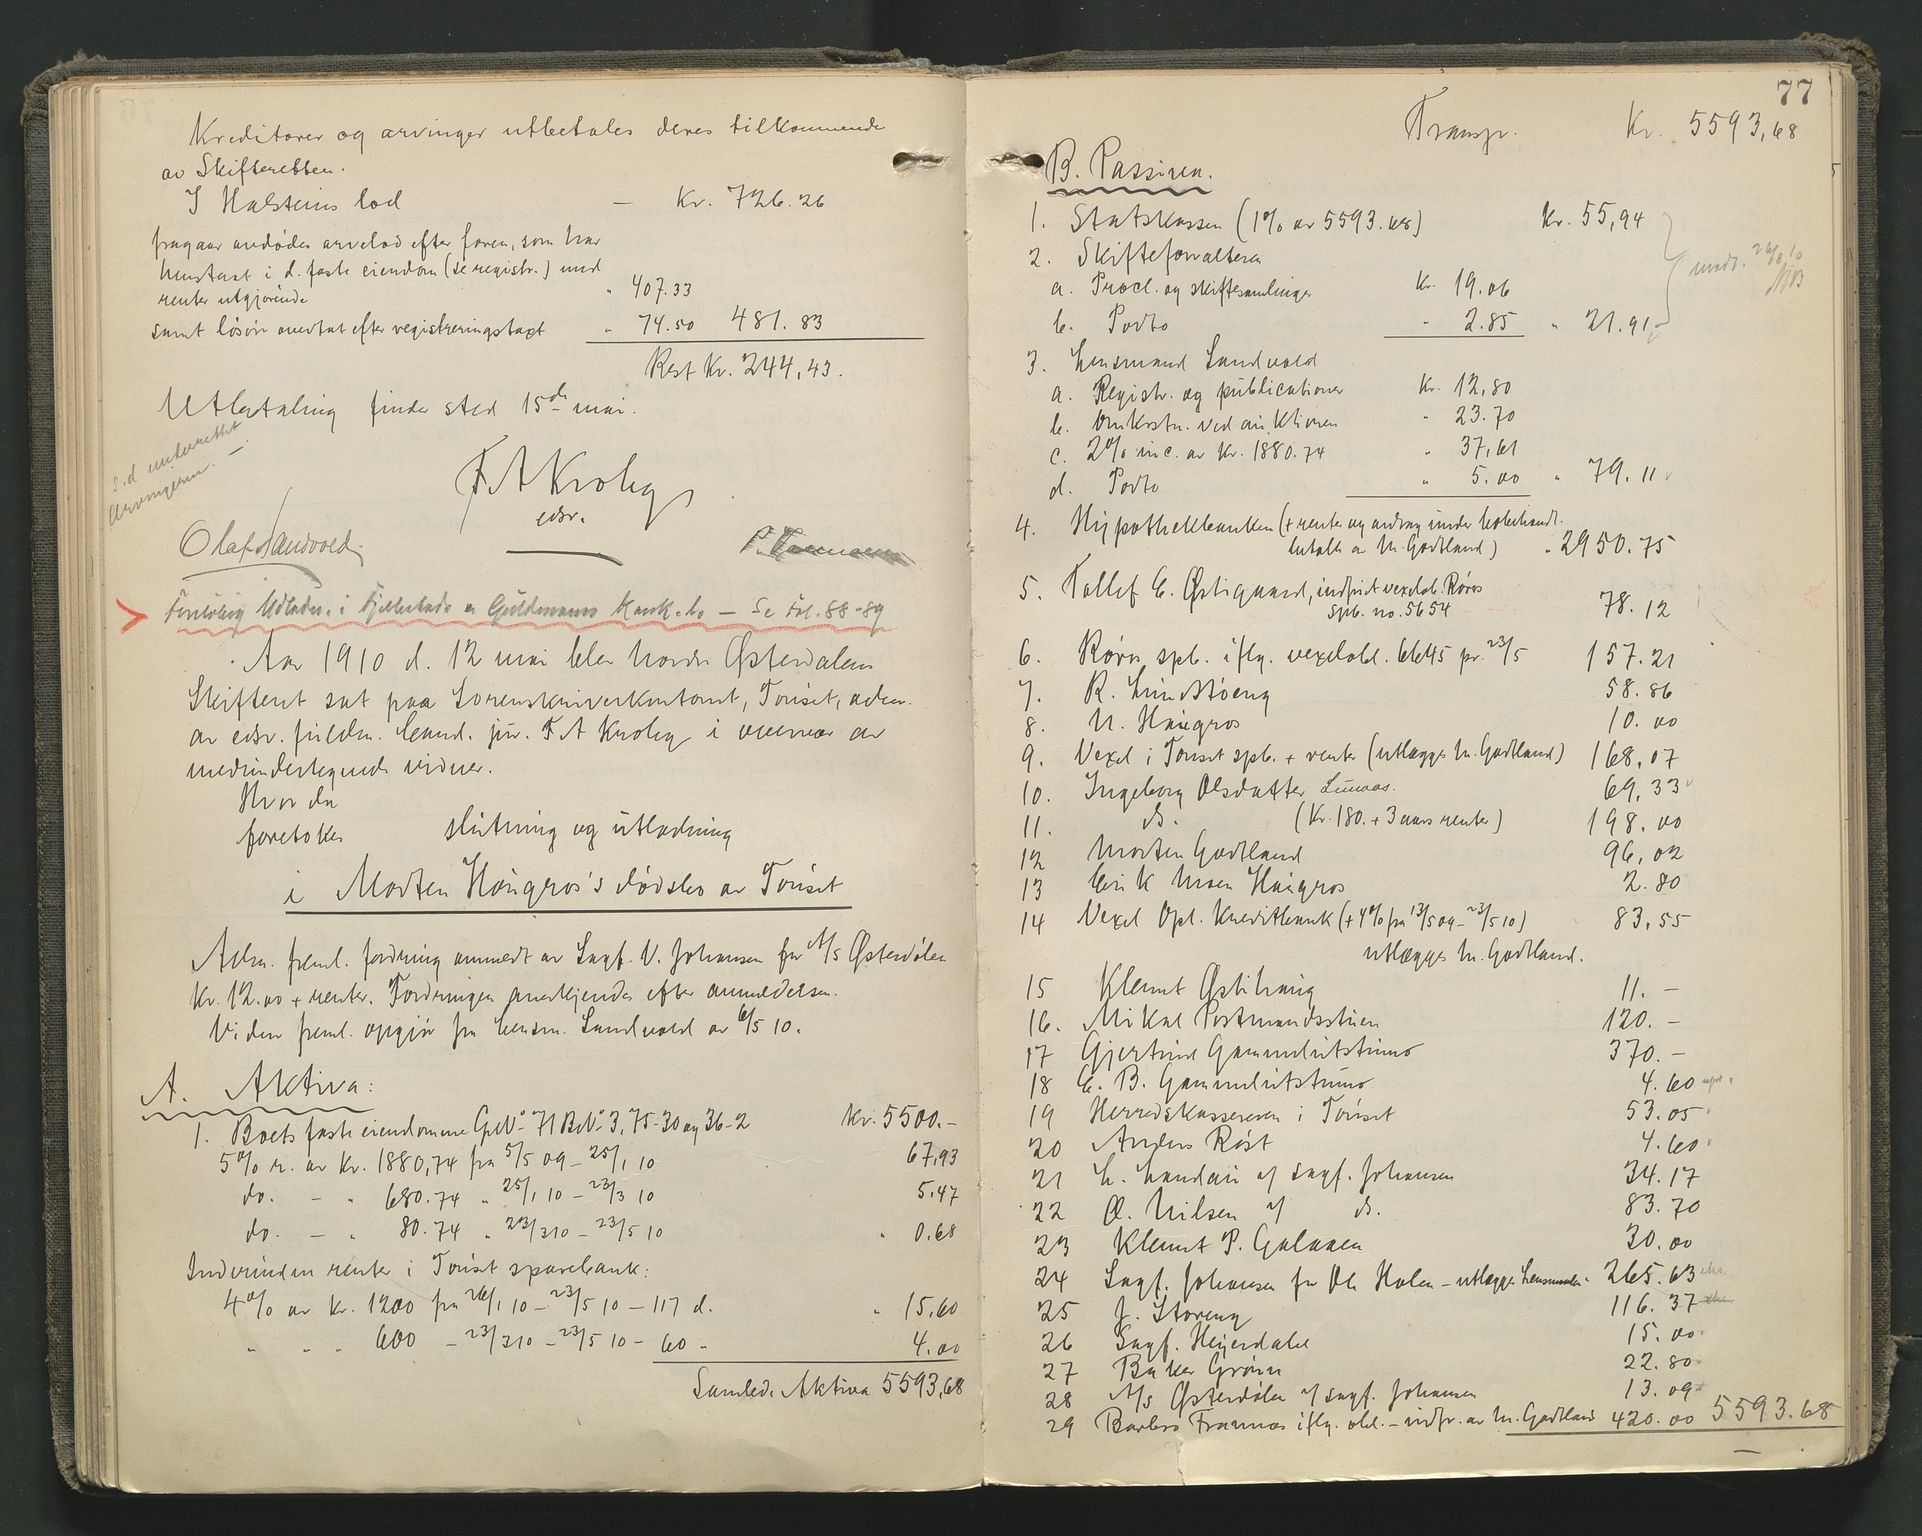 Kreditorer og arvinger utbetales deres tilkommende
av Skifteretten.
I Halsteins lod — Kr. 726.26
fragaar avdødes arvelod efter faren, som har
henstaat i d. faste eiendom (se registr.) med
renter utgjørende " 407.33
samt løsøre overtat efter registreringstaxt " 74.50 481.83
Rest Kr. 244,43.
Utbetaling finder sted 15de mai.
s.d underrettet
arvingerne. —
F A Krohg
edsv.
Olaf Sandvold.
Foreløbig Utlodn. i Fjellstads og Guldmanns Konk.bo — Se Fol. 88-89
Aar 1910 d. 12 mai blev Nordre Østerdalens
Skifteret sat paa Sorenskriverkontoret, Tønset, adm.
av edsv. fuldm. Cand. jur. F A Krohg i overvær av
medundertegnede vidner.
Hvor da
foretokes slutning og utlodning
i Morten Haugros's dødsbo av Tønset
Adm. freml. fordring anmeldt av Sagf. N. Johansen for A/s Østerdølen
Kr. 12.00 + renter. Fordringen anerkjendes efter anmeldelsen.
Viden freml. opgjør fra Lensm. Sandvold av 6/5 10.
A. Aktiva:
1. Boets faste eiendomme G.No. 71 B.No. 3, 75-30 og 36-2 Kr. 5500.-
5% r. av Kr. 1880,74 fra 5/5 09 - 25/1 10 67,93
do. — " 680.74 " 25/1 10 - 23/3 10 5.47
do. — " 80.74 " 23/3 10 - 23/5 10 " 0.68
Indvunden renter i Tønset sparebank:
4% av Kr. 1200 fra 26/1 10 - 23/5 10 - 117 d. " 15,60
" " " 600 - 23/3 10 - 23/5 10 - 60 " 4.00
Samlede Aktiva 5593,68
77
Transp. Kr. 5593,68
B. Passiva.
1. Statskassen (1% av 5593.68) Kr. 55,94
2. Skifteforvalteren
a. Procl. og skiftesamlinger Kr. 19.06
b. Porto " 2.85 " 21.91
3. Lensmand Sandvold
a. Registr. og publicationer Kr. 12,80
b. Omkostn. ved auktionen " 23.70
c. 2% inc. av Kr. 1880.74 " 37,61
d. Porto " 5.00 " 79.11
4. Hypothekbanken (+ renter og avdrag under bobehandl.
betalt av M. Godtland) " 2950.75
5. Tollef E. Østigaard, indfriet vexelobl. Røros
spb. no. 5654 78.12
6. Røros spb. iflg. vexelobl. 6645 pr. 23/5 157.21
7. R. Lindstøeng 58.86
8. N. Haugros 10.00
9. Vexel i Tønset spb. + renter (utlægges M. Godtland) 168,07
10. Ingeborg Olsdatter Lunaas. 69,33
11. ds. (Kr. 180. + 3 aars renter) 198.00
12 Morten Godtland 96,02
13 Erik Moen Haugros 2.80
14 Vexel Opl. Kreditbank (+ 4% fra 13/5 09 - 23/5 10) 83,55
utlægges M. Godtland.
15 Klemet Østihaug 11. —
16. Mikal Postmandsstuen 120. —
17 Gjertrud Gammelutstumo 370. —
18 E. B. Gammelutstumo 4.60
19 Herredskassereren i Tønset 53.05
20 Anders Røst 4.60
21 L. Landau v/ sagf. Johansen 34.17
22 O. Nilsen v/ ds. 83.70
23 Klemet P. Galaaen 30.00
24 Sagf. Johansen for Ole Holen - utlægges Lensmanden 265.63
25 J. Storeng 116.37
26 Sagf. Heyerdahl 15.00
27 Baker Grønn 22.80
28 A/s Østerdølen v/ sagf. Johansen 13.09
29 Barbro Framnæs iflg. obl. - indfr. av M. Godtland 420.00 5593.68